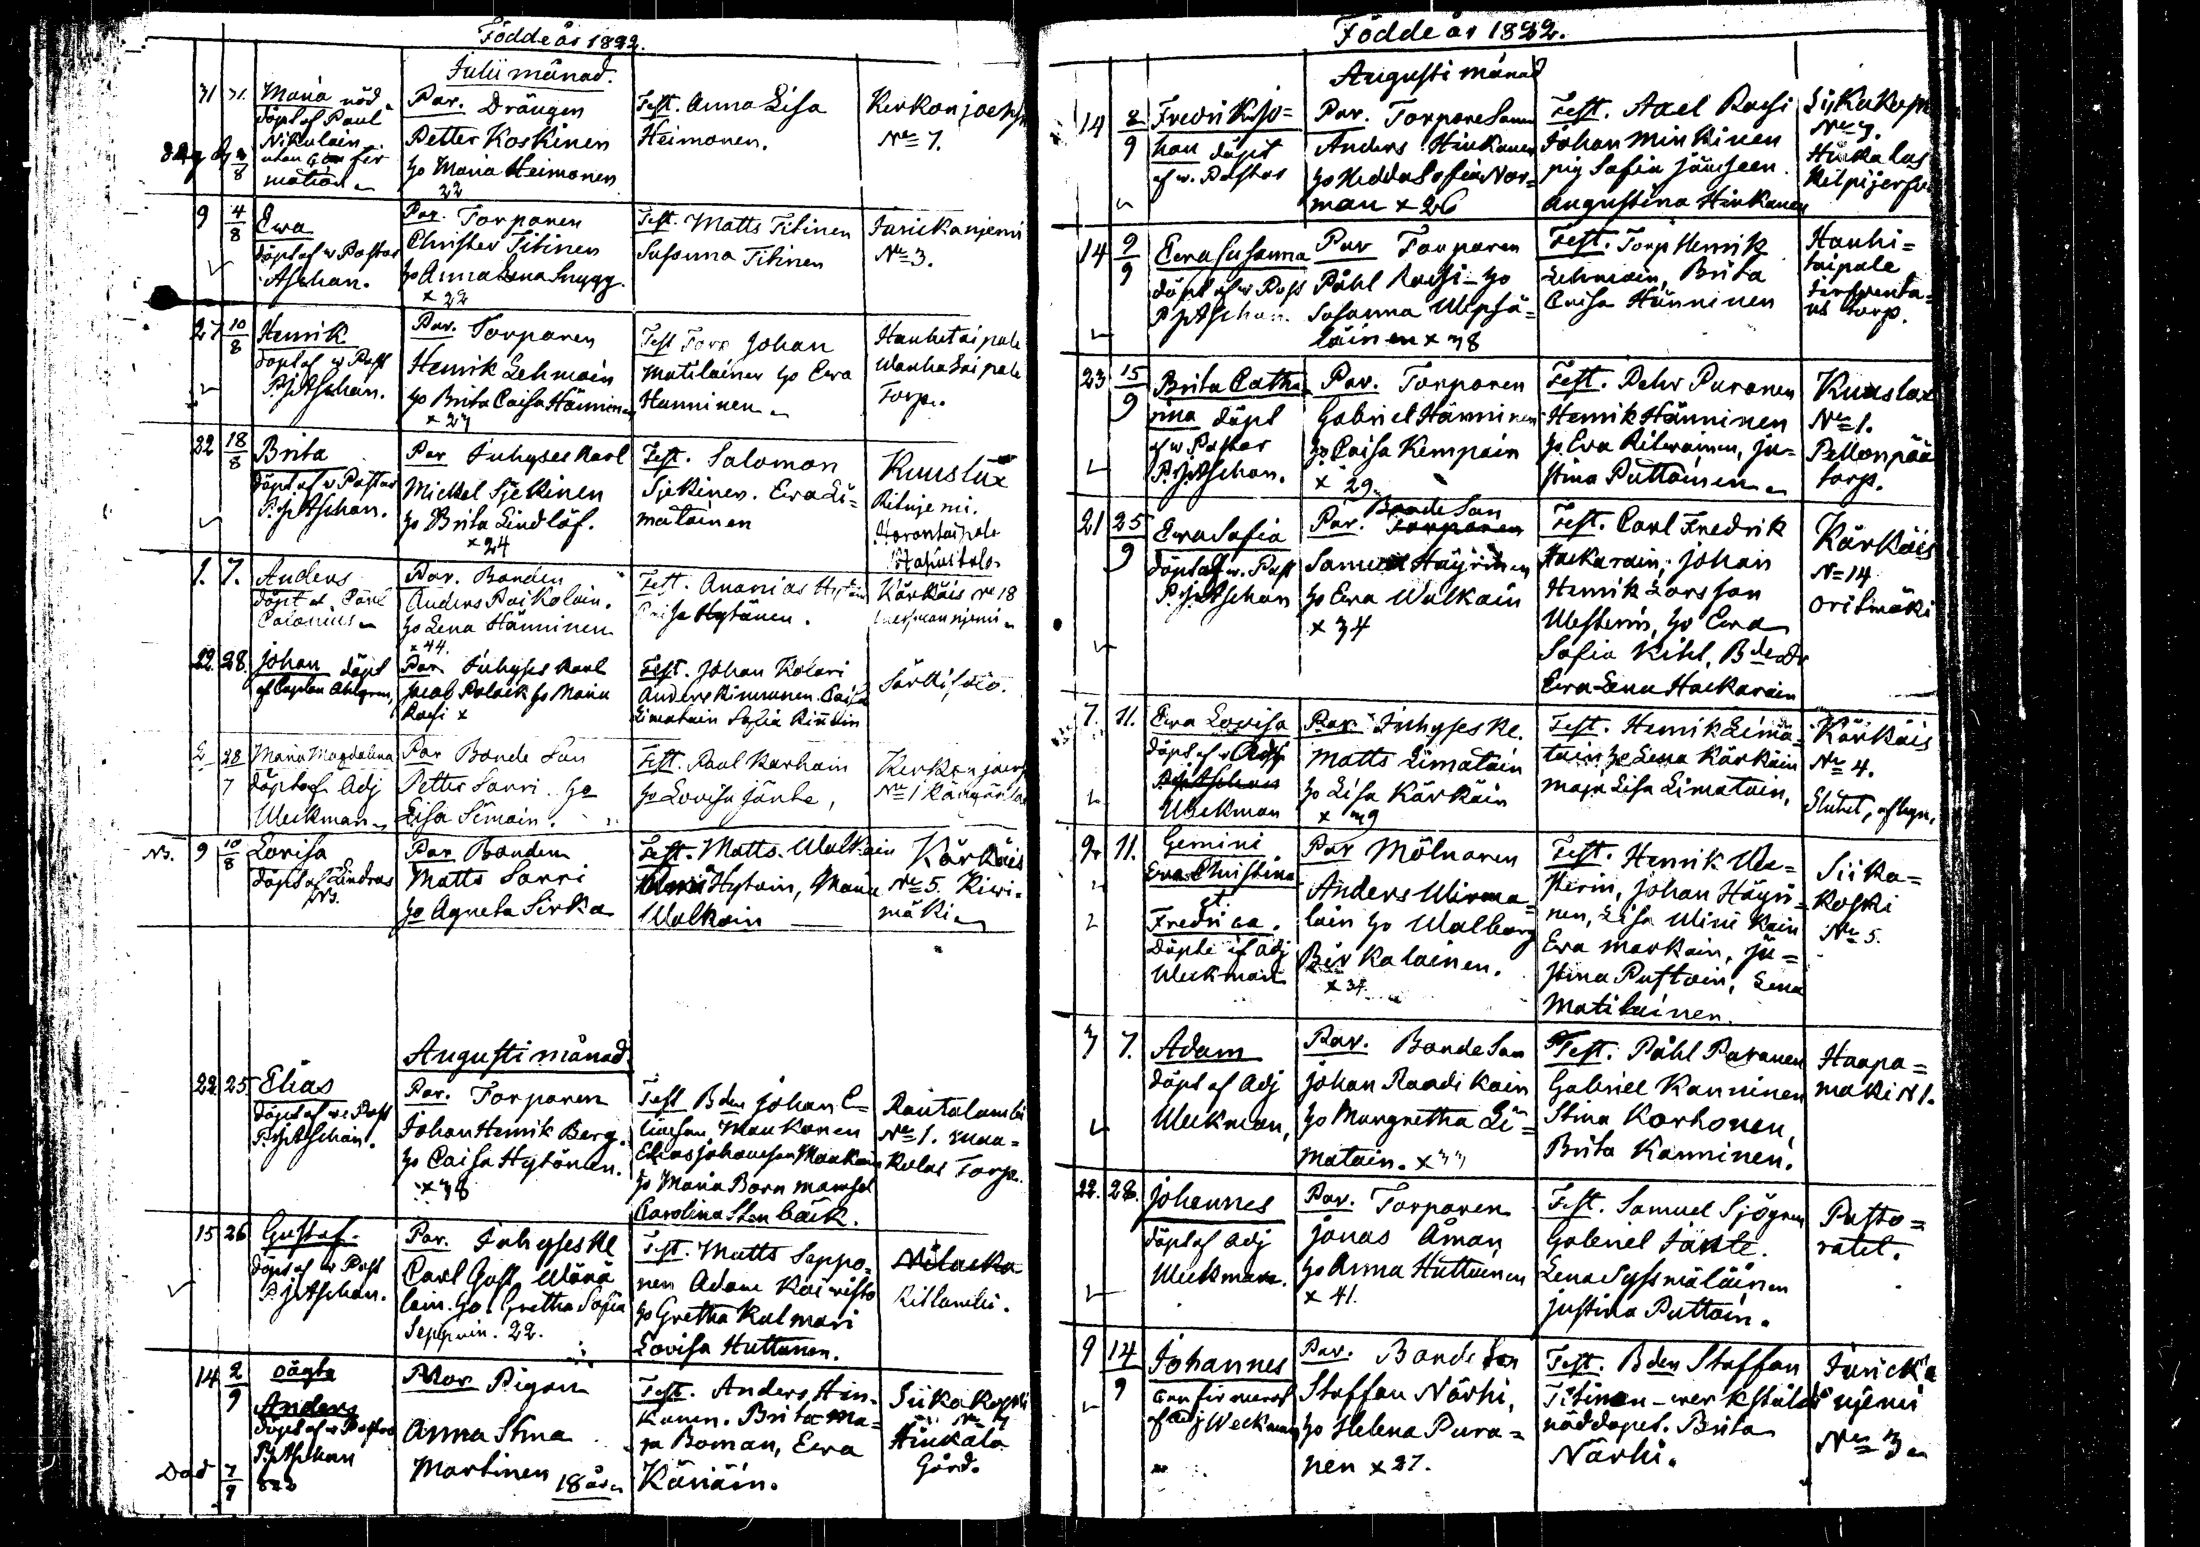 Födde år 1822.
Julii månad.
31 31. Maria nöd
döpt af Paul
Nikulain
utan
mation
8
Par. Drängen
Petter Koskinen
ho Maria Heimonen
22
Test. Anna Lisa
Heimonen.
No 7.
9 4/8 Ewa
döpt af w Pastor
Aschan.
Par. Torparen
Christer Titinen
ho Anna Lena Snygg.
x 22
Test. Matts Titinen
Susanna Titinen
No 3.
27 10/8 Henrik
döpt af w Past
P. J. Aschan.
Par. Torparen
Henrik Lehmoin
ho Brita Caisa Hänninen
x 27
Test Torp Johan
Matilainen ho Ewa
Hänninen
Hanhitaipale
Torp.
22 18/8 Brita
döpt af w Pastor
P. J. Aschan.
Par Inhyses Karl
Mickel Sjekinen
ho Brita Lindlöf.
x 24
Test. Salomon
Sjekinen. Ewa Li=
matainen
Kuuslax
1. 7. Anders
döpt af Paul
Par. Bonden
Anders Paikolain.
ho Lena Hänninen
x 44.
Test. Ananias
Caisa Hytönen.
Kärkäis No 18
22. 28. Johan döpt
af Caplan Ahlgren,
Par Inhyses Karl
Jacob Polack ho Maria
Raesi x
Test. Johan Kolari
Anders Kinnunen Caisa
Limatain Sofia
Särkisalo.
2 28/7 Maria Magdalena
döpt af Adj
Weckman
Par Bonde Son
Petter Sarri ho
Lisa Simoin.
Test. Paul Karhain
ho Lovisa Jänte,
No 1
9 10/8 Lovisa
döpt af Lindros
Par Bonden
Matts Sarri
ho Agneta Sirka
Test. Matts Walkain
Hytoin, Maria
Walkain
Kärkäis
No 5. Kiwi-
mäki
Augusti månad.
22. 25 Elias
döpt af w Past
P. J. Aschan.
Par. Torparen
Johan Henrik Berg.
ho Caisa Hytönen.
x 38
Test Bden Johan E-
liasson Maukonen
Elias Johansson Maukoin
ho Maria Born Mamsel
Carolina Stenbäck.
Rautalambi
No 1.
Torp.
15 26 Gustaf.
döpt af w Past
P. J. Aschan.
Par. Inhyses Kl
Carl Gust. Wänä
lain. ho Gretha Sofia
Seppoin. 22.
Test. Matts Seppo-
nen Adam Koiwisto
ho Gretha Kalmari
Lovisa Huttunen.
14 2/9 oägta
Anders
döpt af w Pastor
P. J. Aschan
Död 7/9 822
Mor Pigan
Anna Stina
Martinen 18 år
Test. Anders Hin-
kanen. Brita Ma=
ja Boman, Ewa
Känäin.
Siikakoski
No 7
Hinkala
Gård.
Födde år 1822.
Augusti månad
14 8/9 Fredrik Jo=
han döpt
af w. Pastor
Par. Torpare Son
Anders Hinkanen
ho Hedda Sofia Nor=
man x 26
Test. Axel Raesi
Johan Minkinen
pig Sofia Jääskeen
Augustina Hinkanen
No 7.
14 9/9 Ewa Susanna
döpt af w Past
P. J. Aschan.
Par Torparen
Påhl Raesi ho
Susanna Wepsä=
läinen x 38
Test. Torp Henrik
Lehmoin, Brita
Caisa Hänninen
Hanhi=
taipale
torp.
23 15/9 Brita Catha
rina döpt
af w Pastor
P. J. Aschan.
Par. Torparen
Gabriel Hänninen
ho Caisa Kempain
x 29.
Test. Pehr Puranen
Henrik Hänninen
ho Ewa Ritwainen, Ju=
stina Puttoinen
Kuuslax
No 1.
Pellonpää
torp.
21 25/9 Ewa Sofia
döpt af w. Past
P. J. Aschan
Bonde Son
Par. Torparen
Samuel Häyrinen
ho Ewa Walkain
x 34
Test. Carl Fredrik
Hackarain, Johan
Henrik Larsson
Westerin, ho Ewa
Sofia Kihl, Bdedr
Ewa Lena Hackarain
Kärkäis
No 14
Oritmäki
7. 11. Ewa Lovisa
döpt af v Adj
P. J. Aschan
Weckman
Par. Inhyses Kl.
Matts Limatain
ho Lisa Kärkäin
x 39
Test. Henrik Lima=
tain, ho Lena Kärkäin
Maja Lisa Limatain,
Kärkäis
No 4.
9. 11. Gemini
Ewa Christina
et
Fredrica.
döpte af adj
Weckman
Par Mölnaren
Anders Wirma=
lain ho Walborg
Birkalainen.
x 34
Test. Henrik We=
sterin, Johan Häyri=
nen, Lisa Winikain
Ewa Markain, Ju=
stina Puttoin, Lena
Matilainen.
Siika=
koski
No 5.
7 7. Adam
döpt af Adj
Weckman,
Par. Bonde Son
Johan Raadikain
ho Margretha Li=
matain. x 33
Test. Påhl Puranen
Gabriel Kanninen
Stina Korhonen,
Brita Kanninen.
Haapa=
mäki N 1.
22. 28. Johannes
döpt af Adj
Weckman.
Par. Torparen
Jonas Åman
ho Anna Huttunen
x 41.
Test. Samuel Sjögren
Gabriel Jänte.
Lena Syssmäläinen
Justina Puttoin.
Pasto=
ratet.
9 14/9 Johannes
Confirmerat
af Adj Weckman
Par. Bonde Son
Staffan Närhi,
ho Helena Pura=
nen x 27.
Test. Bden Staffan
Titinen - werkstälde
nöddopet. Brita
Närhi.
Juricka
njemi
No 3